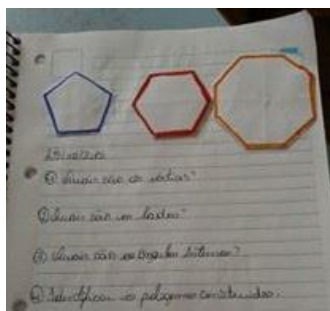 ① Quais são os vértices?
② Quais são os lados?
③ Quais são os ângulos internos?
④ Identificar os polígonos construídos.